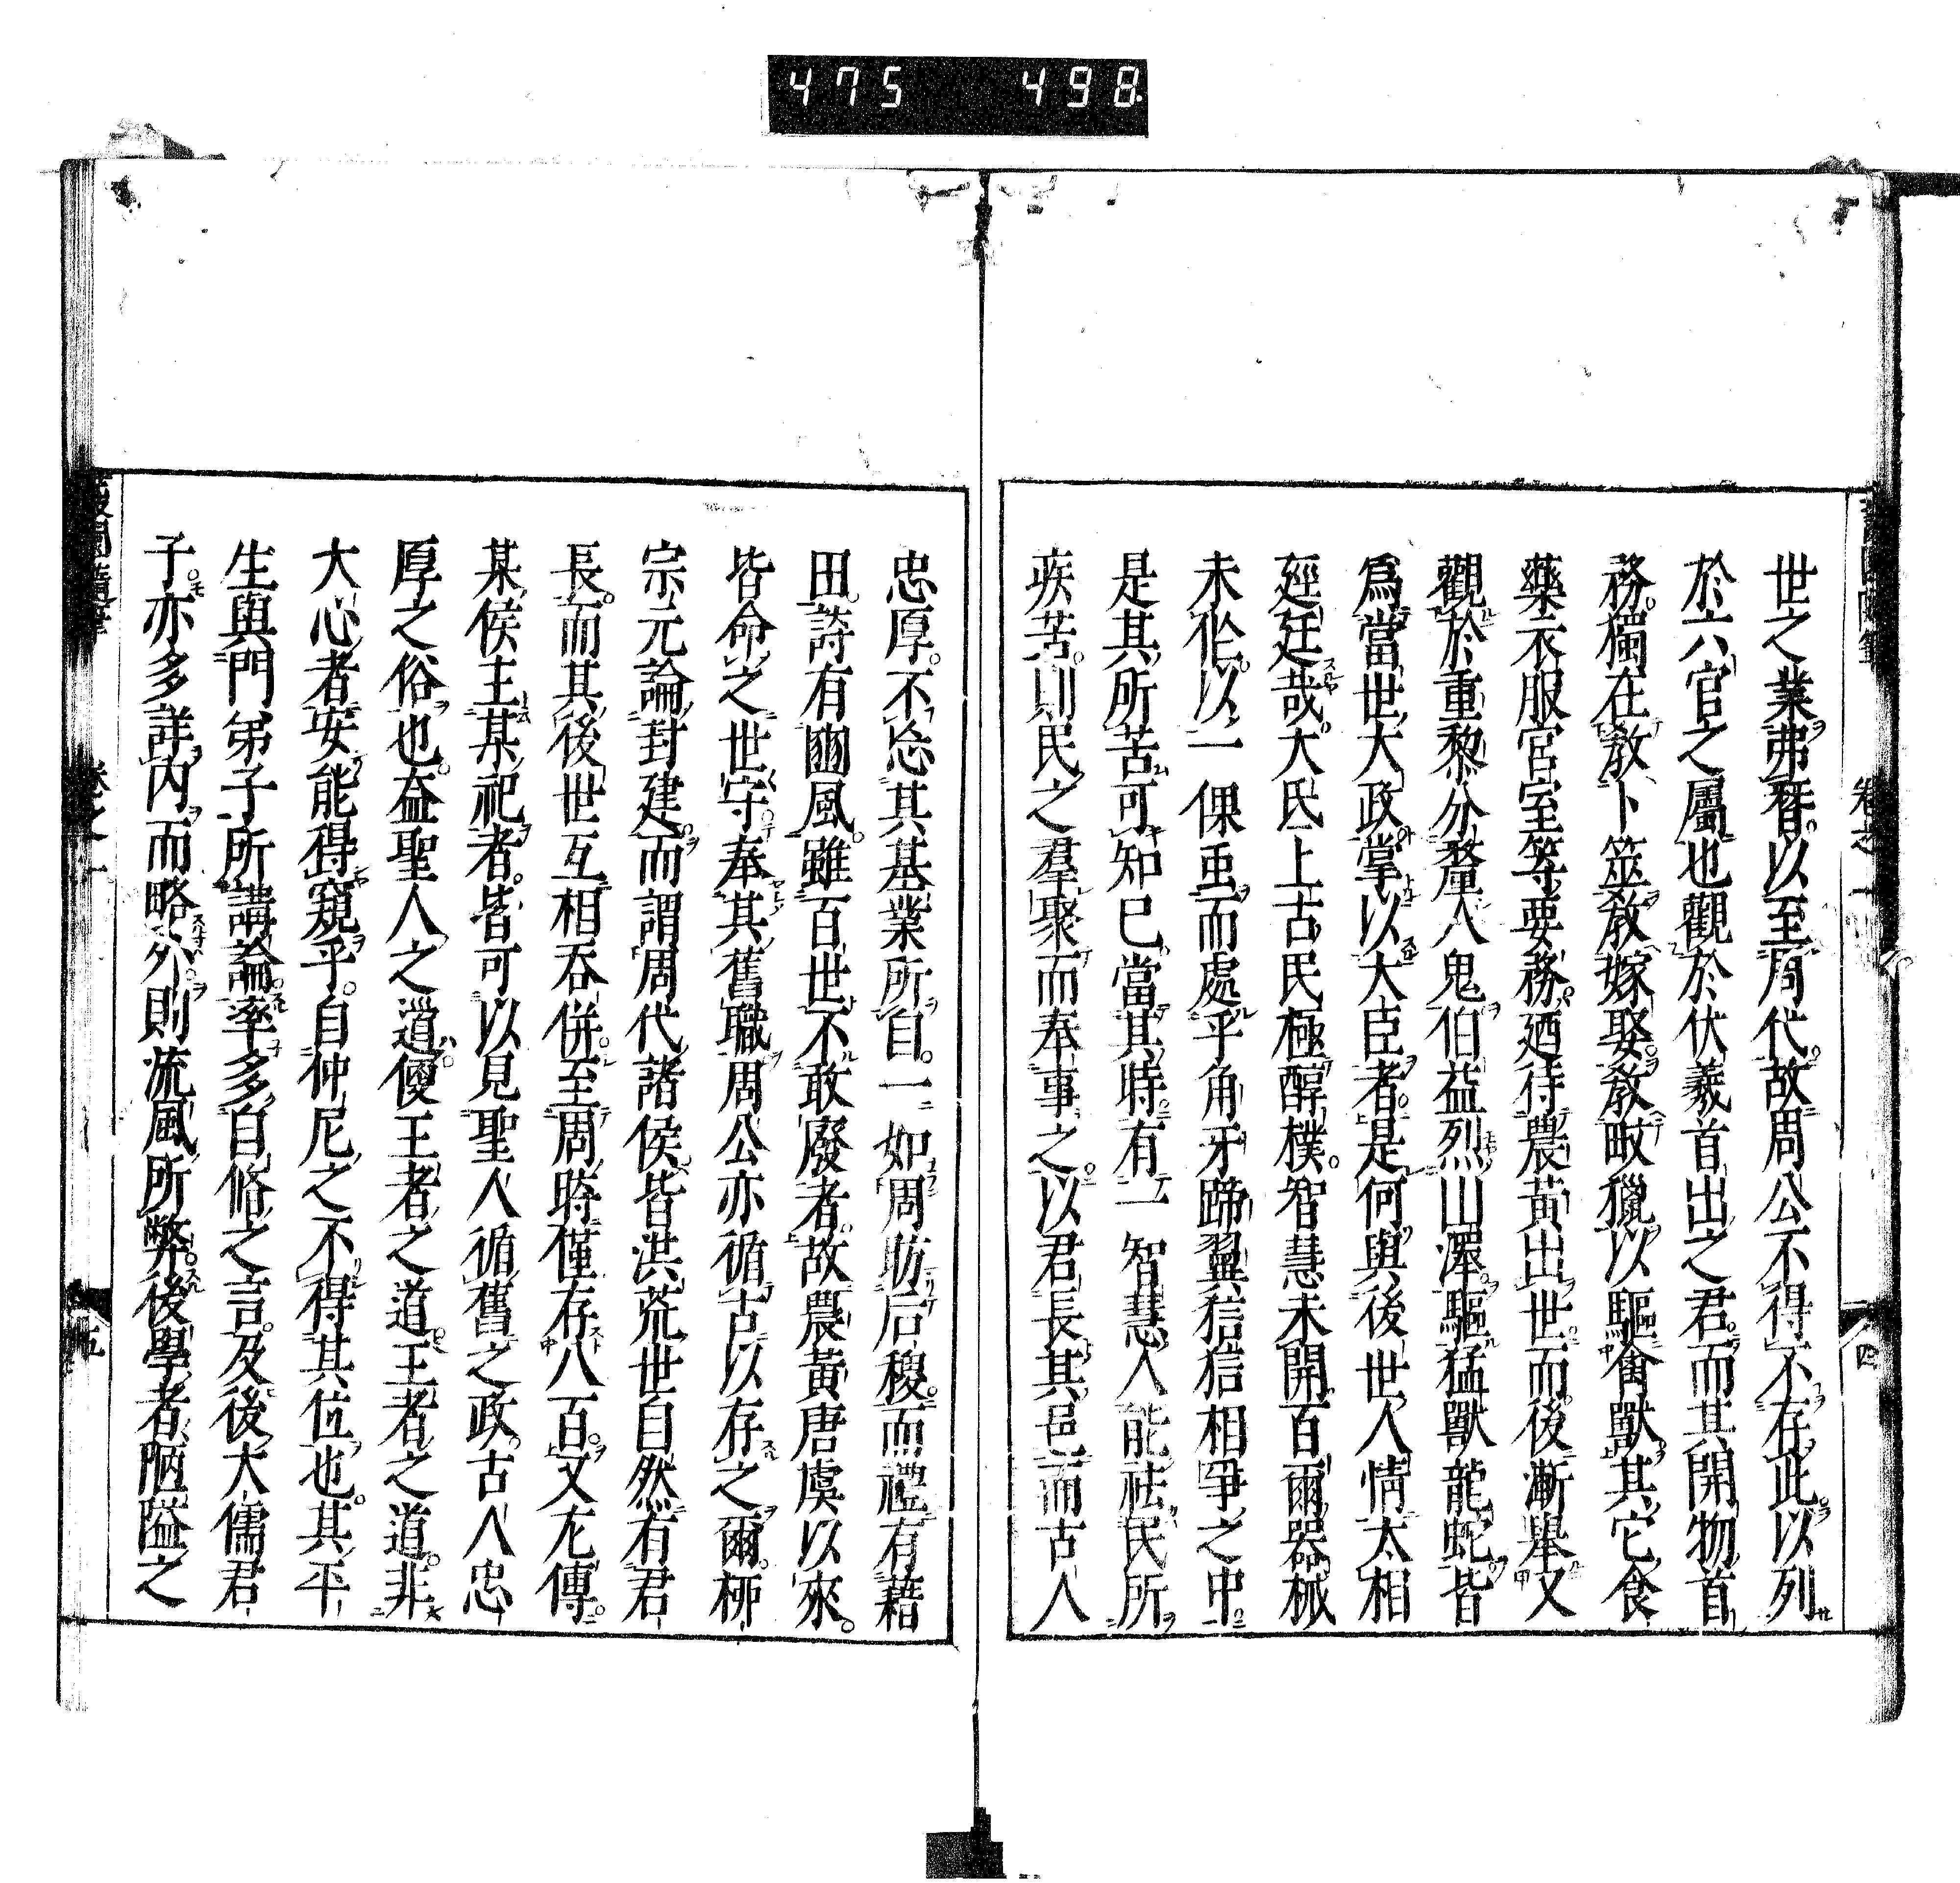 475 498
世之業弗替以至周代故周公不得不存此以列
於六官之屬也觀於伏羲首出之君而其開物首
務獨在敎卜筮敎嫁娶敎畋獵以驅禽獸其它食
藥衣服宮室等要務廼待農黃出世而後漸舉又
觀於重黎分釐人鬼伯益烈山澤驅猛獸龍蛇皆
爲當世大政掌以大臣者是何與後世人情太相
逕廷哉大氐上古民極醇樸智慧未開百爾器械
未作以一倮䖝而處乎角牙蹄翼狺狺相爭之中
是其所苦可知已當其時有一智慧人能祛民所
疾苦則民之羣聚而奉事之以君長其邑而古人
忠厚不忘其基業所自一如周昉后稷而禮有藉
田詩有豳風雖百世不敢廢者故農黃唐虞以來
皆命之世守奉其舊職周公亦循古以存之爾柳
宗元論封建而謂周代諸侯皆洪荒世自然有君
長而其後世互相吞併至周時僅存八百又左傳
某侯主某祀者皆可以見聖人循舊之政古人忠
厚之俗也蓋聖人之道儍王者之道王者之道非
大心者安能得窺乎自仲尼之不得其位也其平
生與門弟子所講論率多自脩之言及後大儒君
子亦多詳內而略外則流風所弊後學者陋隘之
卷之一
四
卷之一
五